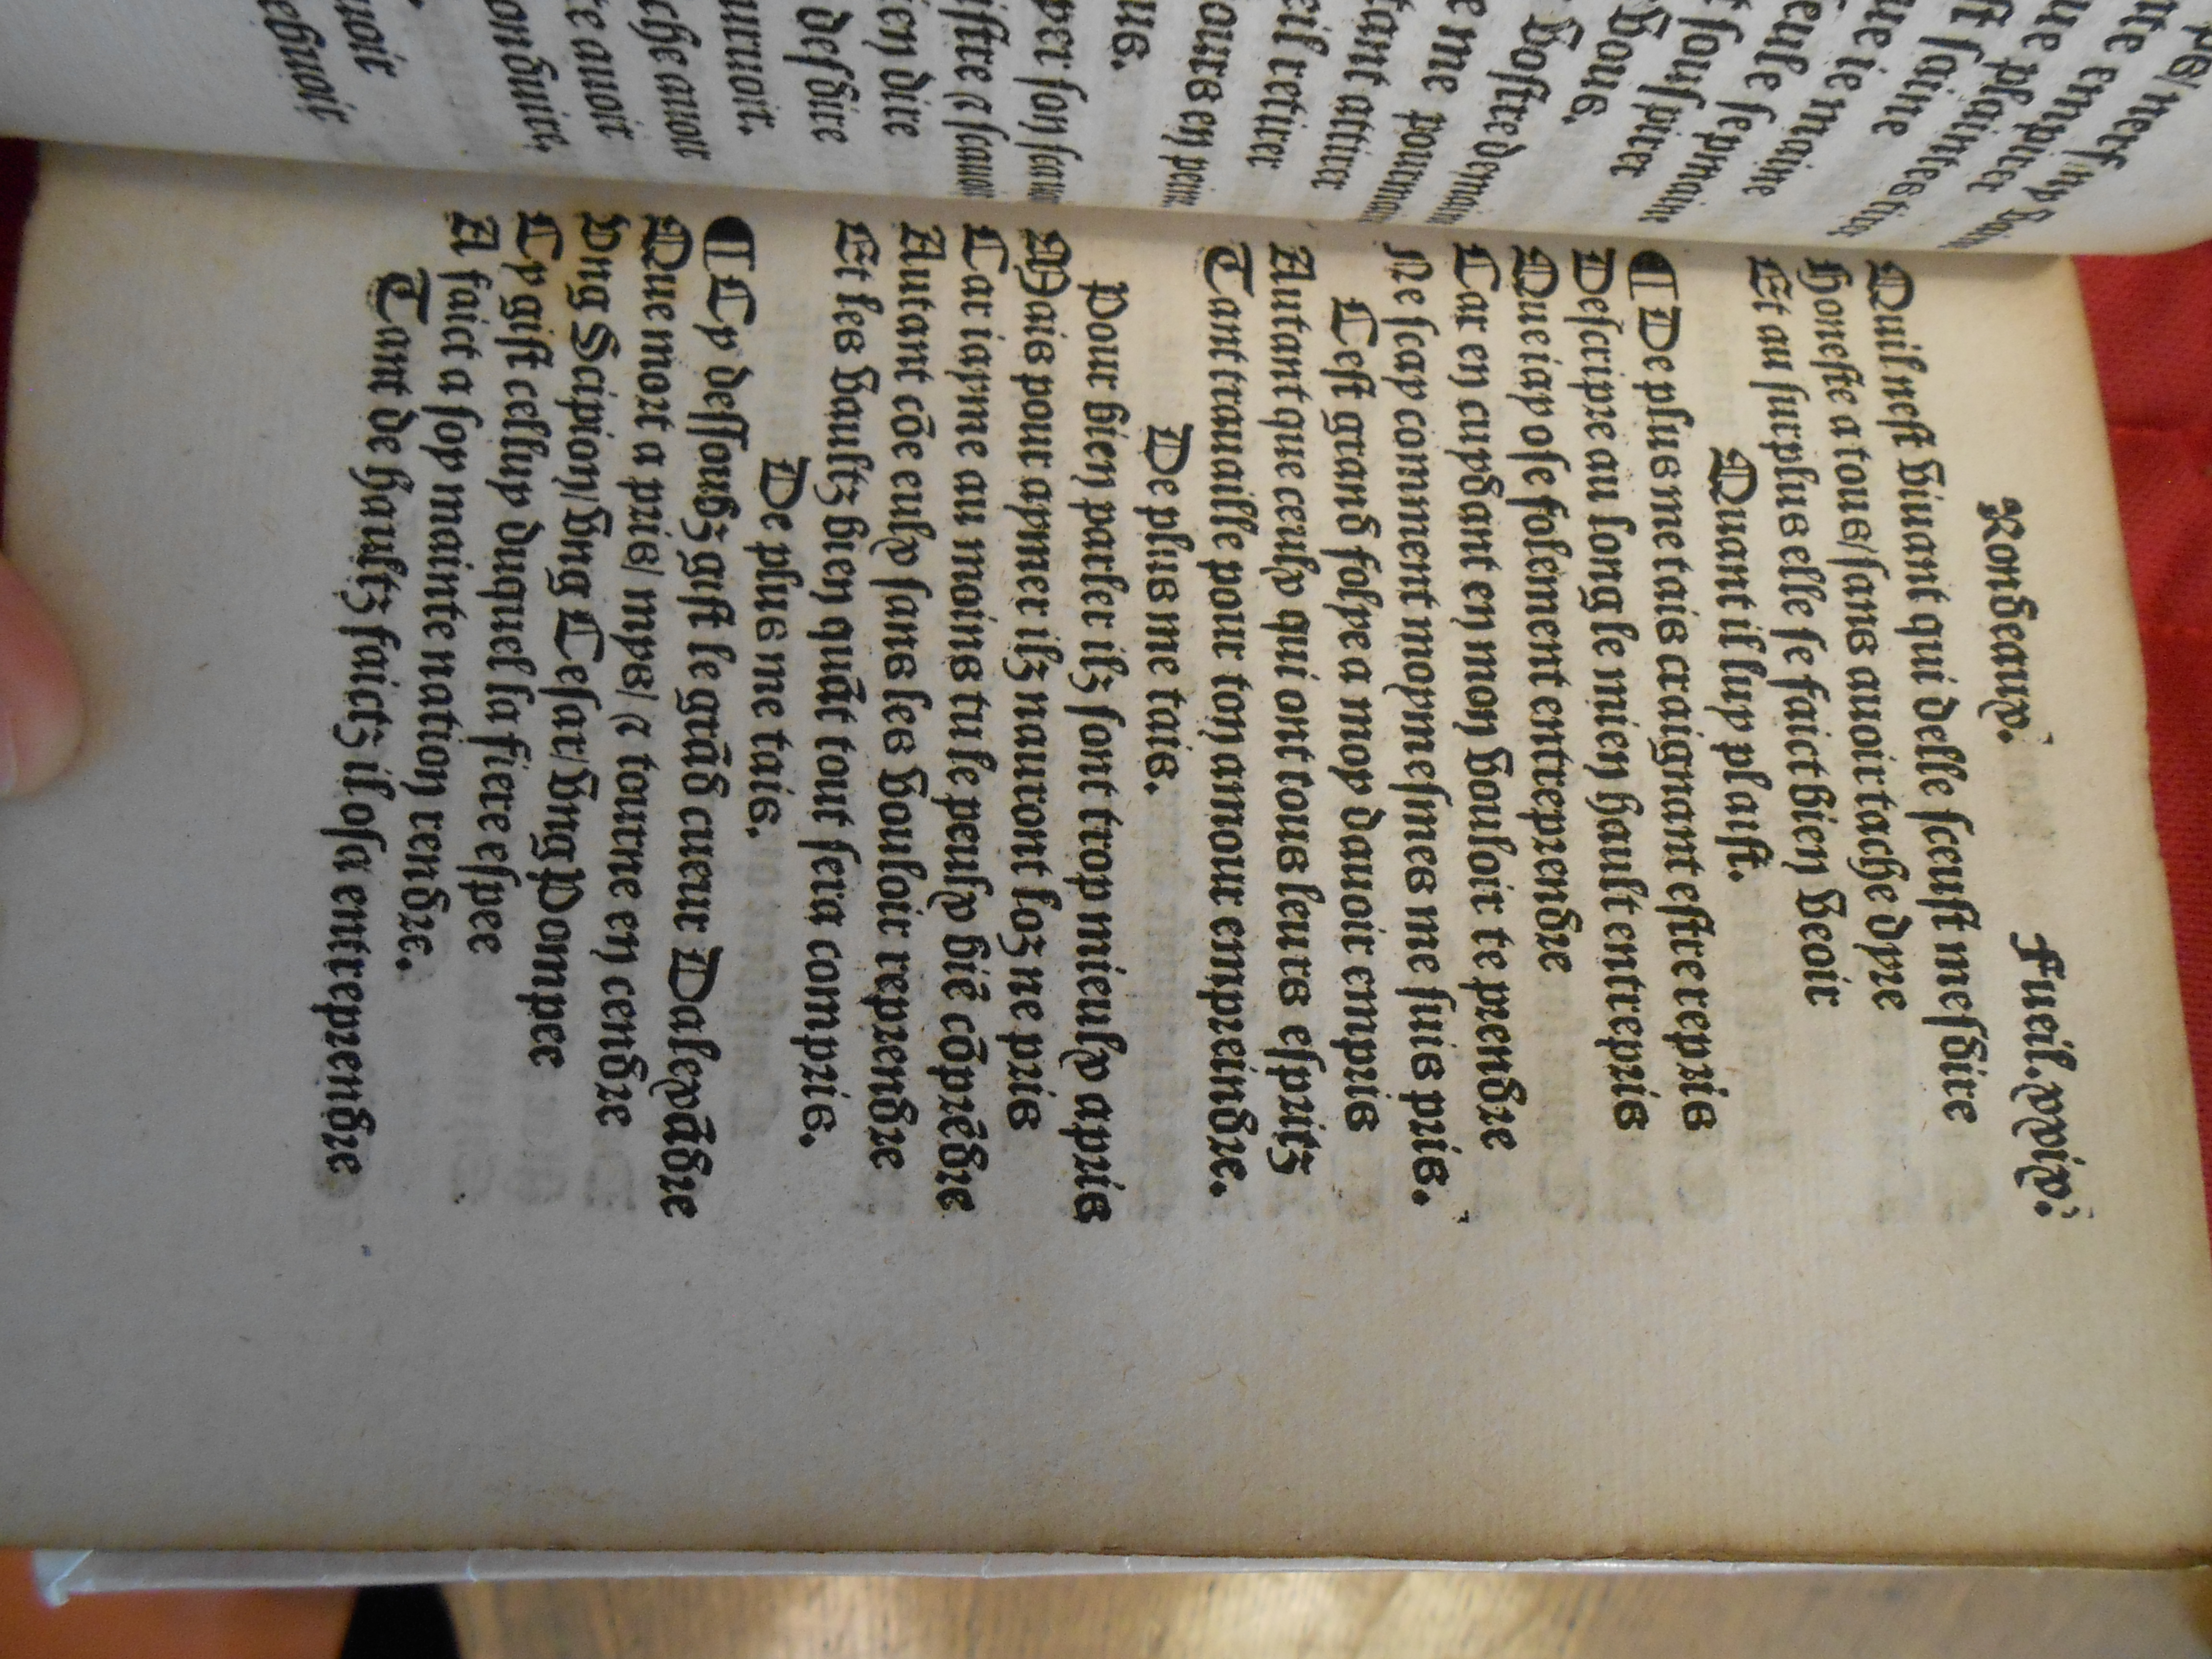 empirer
maine
ſouſpirer
Vous.
me
attirer
retirer
en peine
dire
auoir
auoir
Rondeaux. Fueil.xxix.
Quil neſt viuant qui delle ſceuſt meſdire
Honeſte a tous/ſans auoir tache dyre
Et au ſurplus elle ſe faict bien veoir
Quant il luy plaiſt.
¶ De plus me tais craignant eſtre repris
Deſcripre au long le mien hault entrepris
Que iay oſe folement entreprendre
Car en cuydant en mon vouloir te prendre
Ne ſcay comment moymeſmes me ſuis pris.
Ceſt grand folye a moy dauoir empris
Autant que ceulx qui ont tous leurs eſpritz
Tant trauaille pour ton amour empreindre.
De plus me tais.
Pour bien parler ilz ſont trop mieulx apris
Mais pour aymer ilz nauront loz ne pris
Car iayme au moins tu le peulx biē cōprēdre
Autant cōe eulx ſans les vouloir reprendre
Et les vaultz bien quāt tout ſera compris.
De plus me tais.
¶ Cy deſſoubz giſt le grād cueur Dalexādre
Que mort a pris/ mys/ ⁊ tourne en cendre
Vng Scipion/vng Ceſar/vng Pompee
Cy giſt celluy duquel la fiere eſpee
A faict a ſoy mainte nation rendre.
Tant de haultz faictz il oſa entreprendre